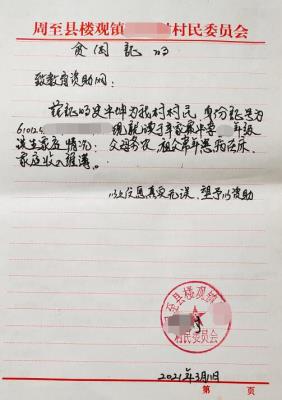 周至县楼观镇 村民委员会
贫困证明
致教育资助网：
兹证明史 坤为我村村民，身份证号为
610124 现就读于 中学 年级
该生家庭情况：父母务农，祖父常年患病在床，
家庭收入维薄。
以上信息真实无误，望予以资助
周至县楼观镇
村民委员会
2021年3月11日